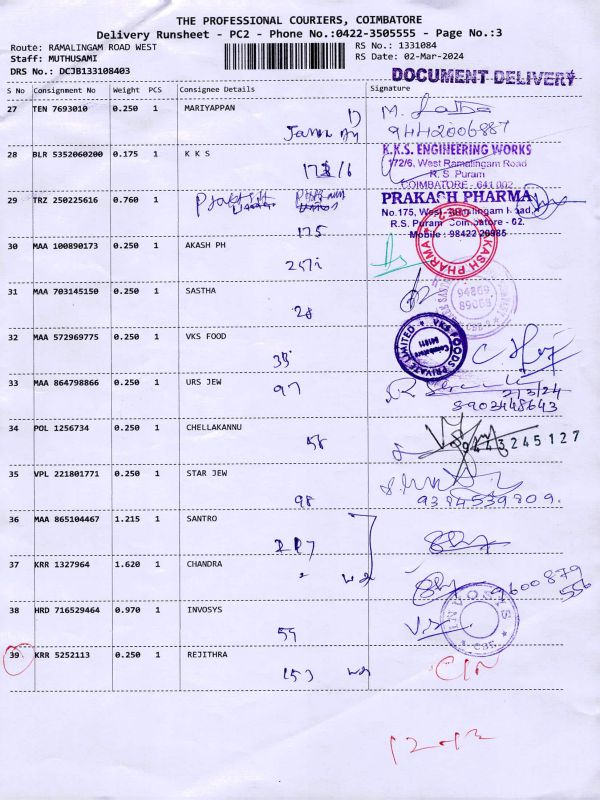 THE PROFESSIONAL COURIERS, COIMBATORE
Delivery Runsheet - PC2 - Phone No.:0422-3505555 - Page No.:3
Route: RAMALINGAM ROAD WEST
RS No.: 1331084
Staff: MUTHUSAMI
RS Date: 02-Mar-2024
DRS No.: DCJB133108403
DOCUMENT DELIVERY
S No Consignment No Weight PCS Consignee Details Signature
27 TEN 7693010 0.250 1 MARIYAPPAN
9442006887
28 BLR 5352060200 0.175 1 K K S
K.K.S. ENGINEERING WORKS
172/6, West Ramalingam Road
R. S. Puram
COIMBATORE - 641 002
29 TRZ 250225616 0.760 1
175
PRAKASH PHARMA
No.175, West Ramalingam Road,
R.S. Puram Coimbatore - 02.
Mobile : 98422 20985
30 MAA 100890173 0.250 1 AKASH PH
257i
31 MAA 703145150 0.250 1 SASTHA
28
94869
89068
32 MAA 572969775 0.250 1 VKS FOOD
VKS FOODS PRIVATE LIMITED
Coimbatore
641011
33 MAA 864798866 0.250 1 URS JEW
97
2/3/24
8903448643
34 POL 1256734 0.250 1 CHELLAKANNU
58
9443245127
35 VPL 221801771 0.250 1 STAR JEW
98
9384539809.
36 MAA 865104467 1.215 1 SANTRO
37 KRR 1327964 1.620 1 CHANDRA
9600879
556
38 HRD 716529464 0.970 1 INVOSYS
59
INVOSYS
CBE
39 KRR 5252113 0.250 1 REJITHRA
153